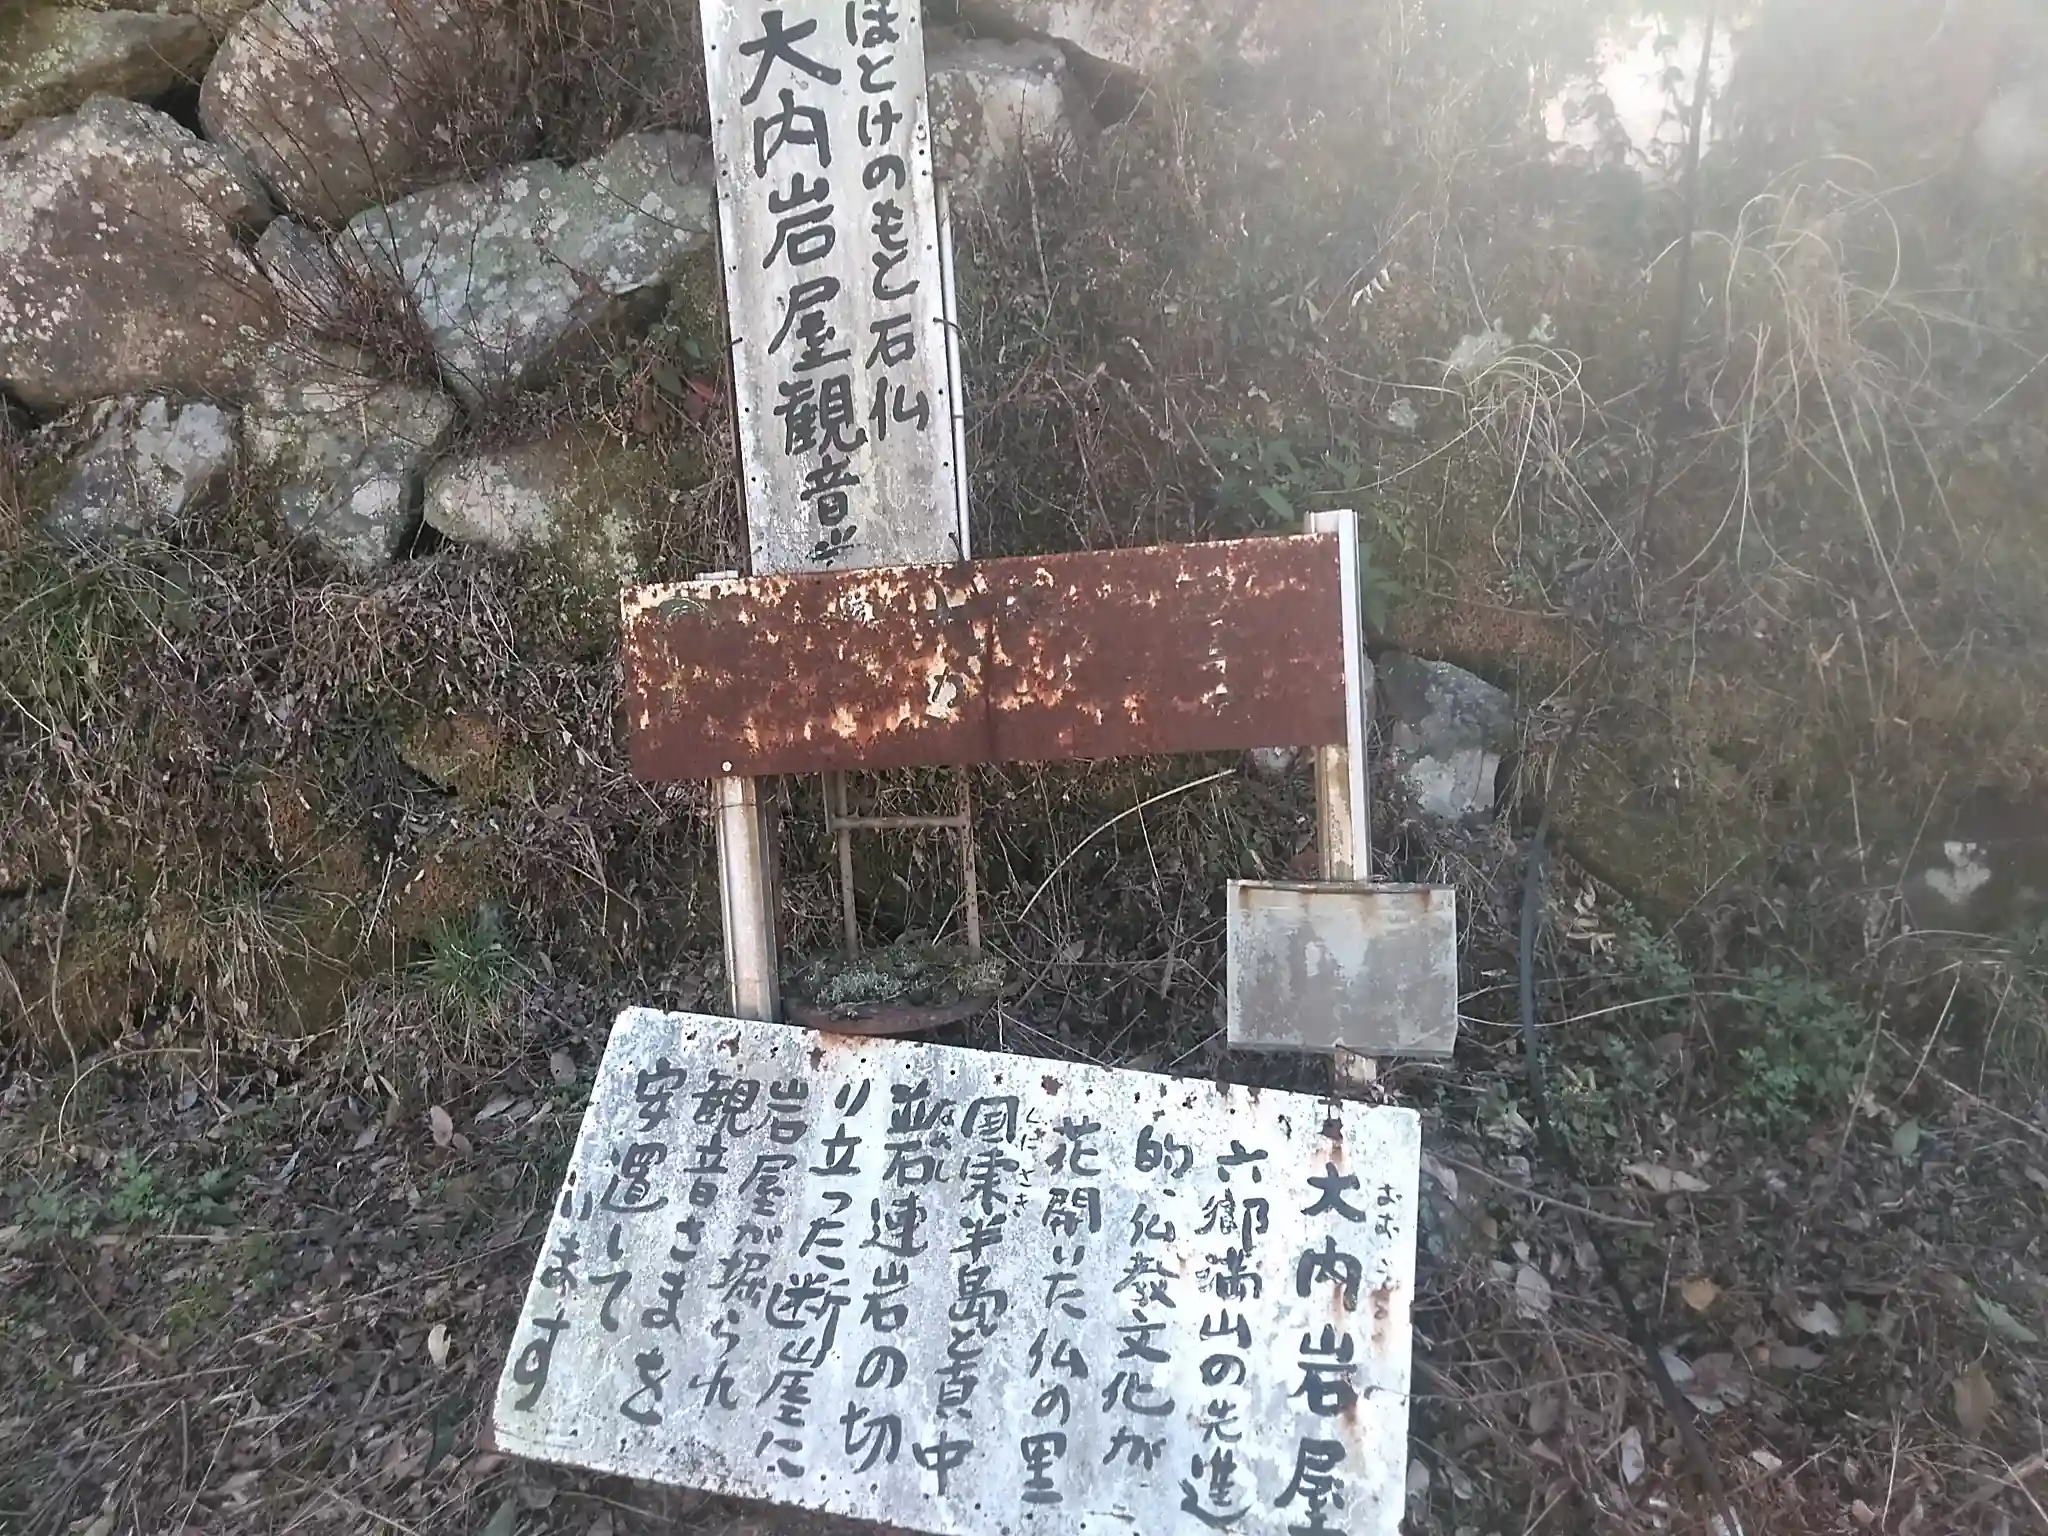 ほとけのもと石仏
大内岩屋観音堂
大内岩屋
おお
六郷満山の先進
的仏教文化が
花開いた仏の里
国東半島と真中
くにさき
並石連岩の切
なめし
り立った断崖に
岩屋が堀られ
観音さまを
安置して
います